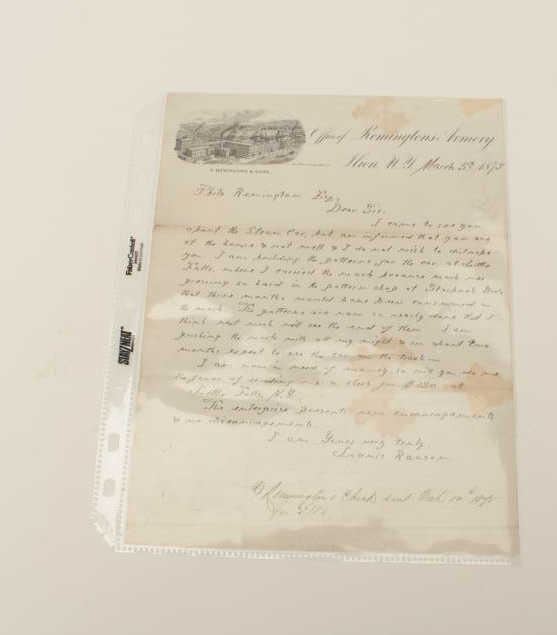 E. REMINGTON & SONS,
Office of Remingtons Armory
Ilion N.Y. March 5th 1875
Philo Remington Esq,
Dear Sir:
I came to see you
about the Steam Car, but am informed that you are
at the house & not well & I do not wish to
you. I am building the patterns for the car at Little
Falls, where I carried the work because work was
in the pattern shop at
that three months would have been consumed in
the work. The patterns are now so nearly done that I
think next week will see the end of them. I am
pushing the work with all my might & in about two
months expect to see the car on the track.
I am now in need of money & will you do me
the favor of sending me a check for at
Little Falls, N.Y.
The enterprise presents new encouragements
& no discouragements.
I am Yours very truly,
Louis Ransom
Remington's Check sent Mch 10th 1875
for
Faber-Castell
STAT/NEAT